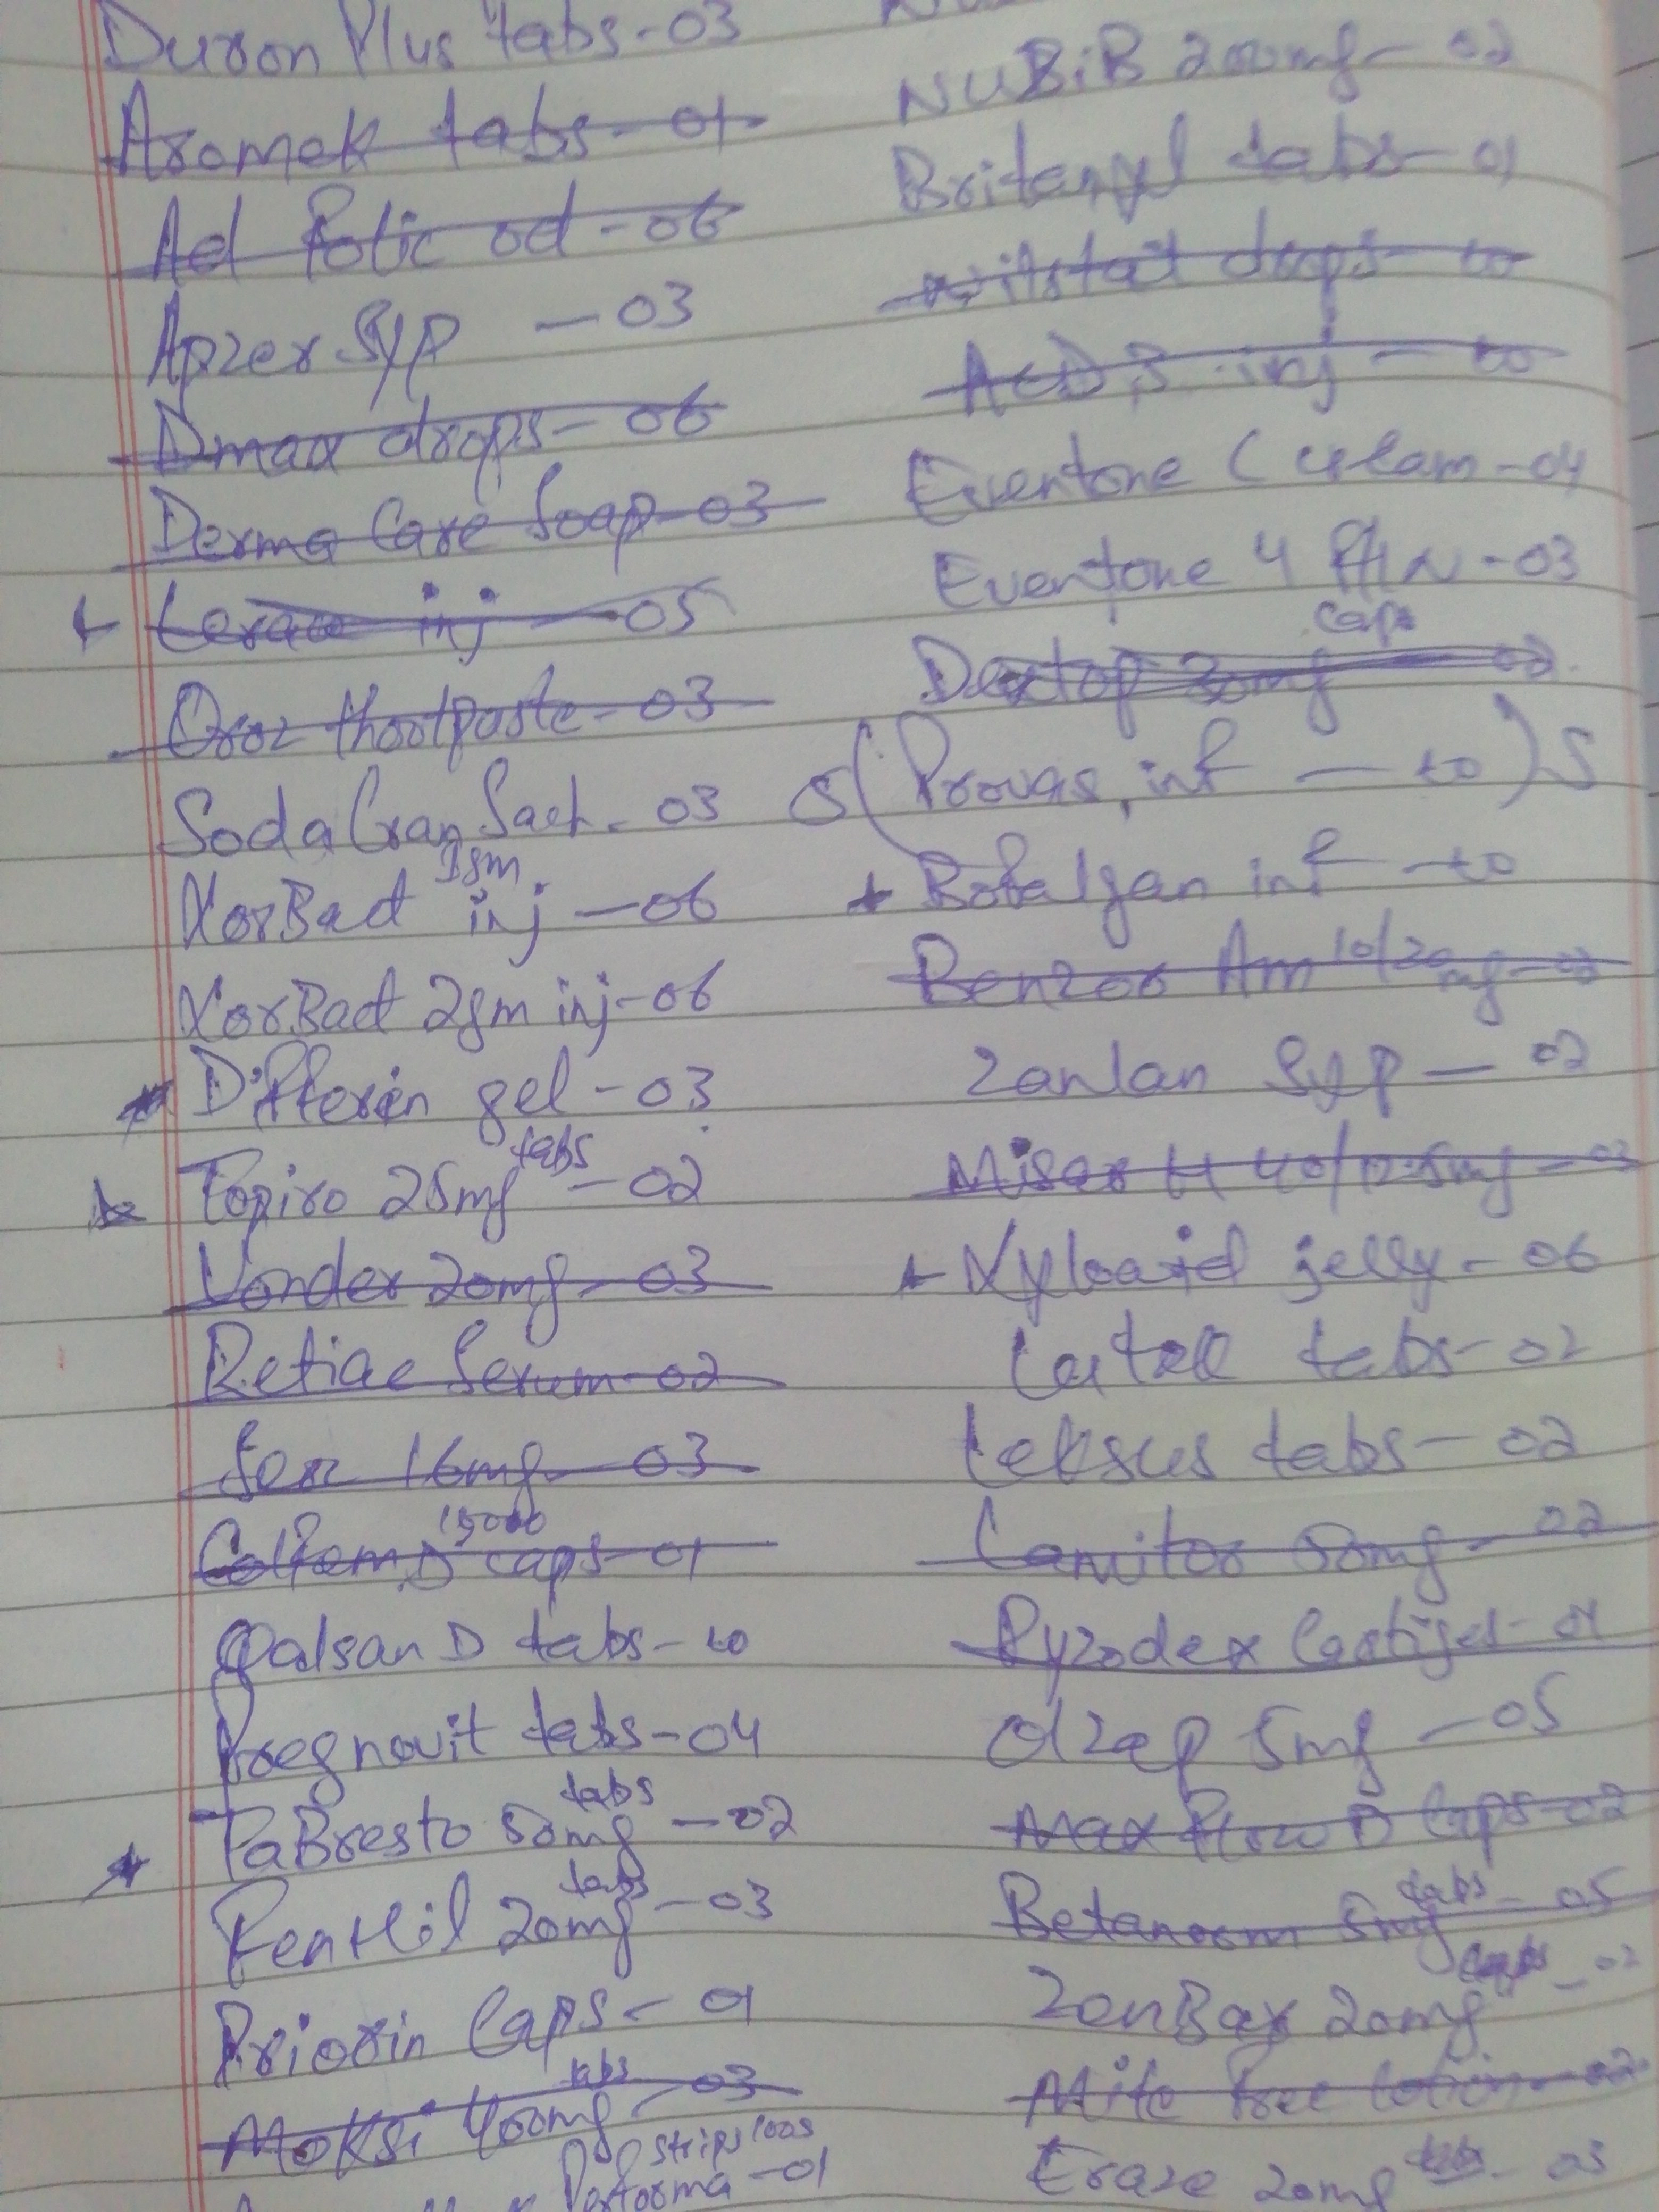 Duron Plus tabs-03
Aromek tabs-01
Ad Folic od-06
Apzer Syp - 03
Dmax drops-06
Derma Care Soap-03
inj - 05
Oroz thootpaste-03
Soda Gran Sach-03
XorBact 1gm inj - 06
XorBact 2gm inj-06
Differin gel-03
Topiro 25mg tabs - 02
Vonder 20mg-03
Retiae Serum-02
16mg-03
caps-01
Qalsan D tabs-10
Pregnovit tabs-04
PaBresto 50mg tabs - 02
FenHil 20mg tabs - 03
Priorin Caps-01
Moksi 400mg tabs - 03
Performa strips 100s - 01
NUBiB 200mg-02
Britanyl tabs-01
drops-10
inj - 10
Eventone C cream-04
Eventone 4 -03
Dextop 30mg caps 02
S(Provas inf - 10)S
Bofalgan inf - 10
Am 10/20mg-02
Zonlan Syp - 02
Misar H 40/12.5mg-03
Xyloaid jelly-06
tabs-02
Leksus tabs-02
Lamitor 50mg-02
Pyzodex
Olzap 5mg - 05
Maxflow D Caps-02
Betanorm 5mg tabs - 05
ZonBax 20mg caps - 02
Mite free lotion-02
Eraze 20mg tabs - 03